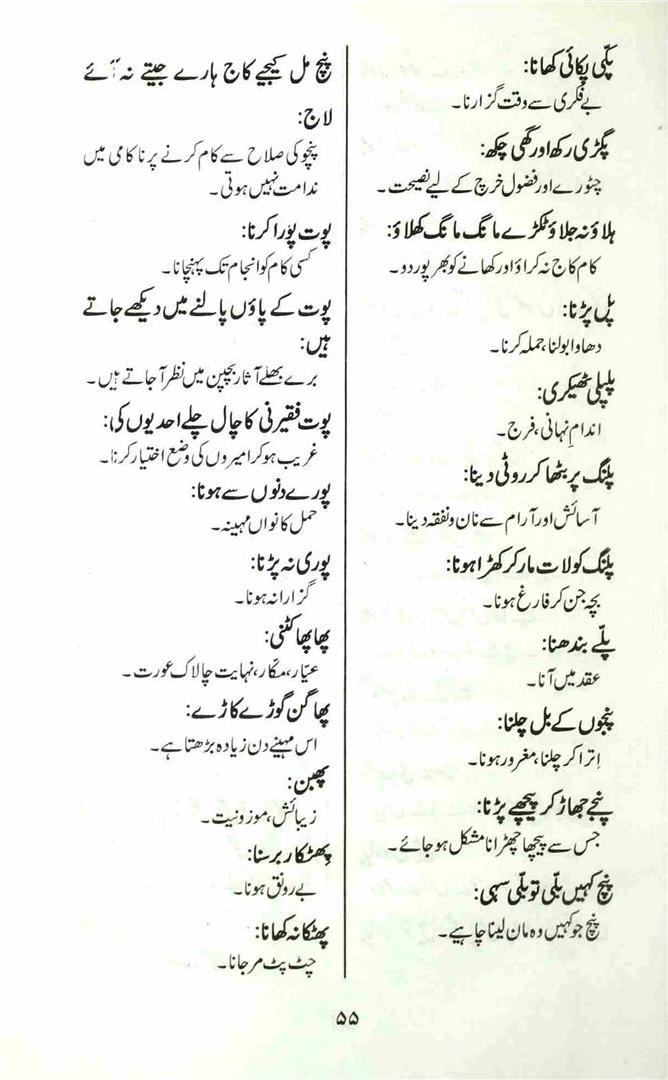 پکّی پکائی کھانا:
بے فکری سے وقت گزارنا۔
پگڑی رکھ اور گھی چکھ:
چٹورے اور فضول خرچ کے لیے نصیحت۔
ہلاؤ نہ جلاؤ ٹکڑے مانگ مانگ کھلاؤ:
کام کاج نہ کراؤ اور کھانے کو بھرپور دو۔
پل پڑنا:
دھاوا بولنا، حملہ کرنا۔
پلپلی ٹھیکری:
اندامِ نہانی، فرج۔
پلنگ پر بٹھا کر روٹی دینا:
آسائش اور آرام سے نان و نفقہ دینا۔
پلنگ کو لات مار کر کھڑا ہونا:
بچہ جن کر فارغ ہونا۔
پلّے بندھنا:
عقد میں آنا۔
پنجوں کے بل چلنا:
اِترا کر چلنا، مغرور ہونا۔
پنجے جھاڑ کر پیچھے پڑنا:
جس سے پیچھا چھڑانا مشکل ہو جائے۔
پنچ کہیں بلّی تو بلّی سہی:
پنچ جو کہیں وہ مان لینا چاہیے۔
پنچ مل کیجیے کاج ہارے جیتے نہ آئے
لاج:
پنچو کی صلاح سے کام کرنے پر ناکامی میں
ندامت نہیں ہوتی۔
پوت پُورا کرنا:
کسی کام کو انجام تک پہنچانا۔
پوت کے پاؤں پالنے میں دیکھے جاتے
ہیں:
برے بھلے آثار بچپن میں نظر آ جاتے ہیں۔
پوت فقیرنی کا چال چلے احدیوں کی:
غریب ہو کر امیروں کی وضع اختیار کرنا۔
پورے دنوں سے ہونا:
حمل کا نواں مہینہ۔
پوری نہ پڑنا:
گزارا نہ ہونا۔
پھاپھا کٹنی:
عیّار، مکّار، نہایت چالاک عورت۔
پھاگن گوڑے کاڑے:
اس مہینے دن زیادہ بڑھتا ہے۔
پھبن:
زیبائش، موزونیت۔
پھِٹکار برسنا:
بے رونق ہونا۔
پھٹکا نہ کھانا:
چٹ پٹ مر جانا۔
۵۵